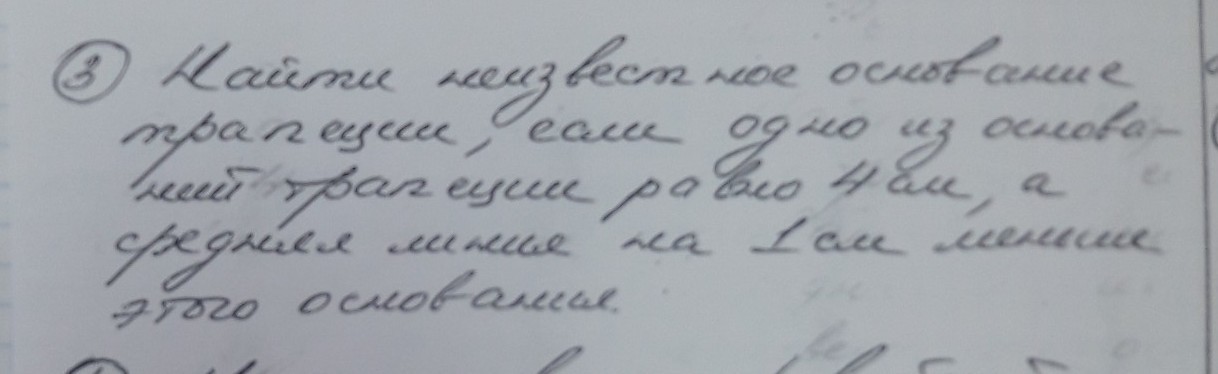 3 Найти неизвестное основание
трапеции, если одно из основа-
ний трапеции равно 4 см, а
средняя линия на 1 см меньше
этого основания.